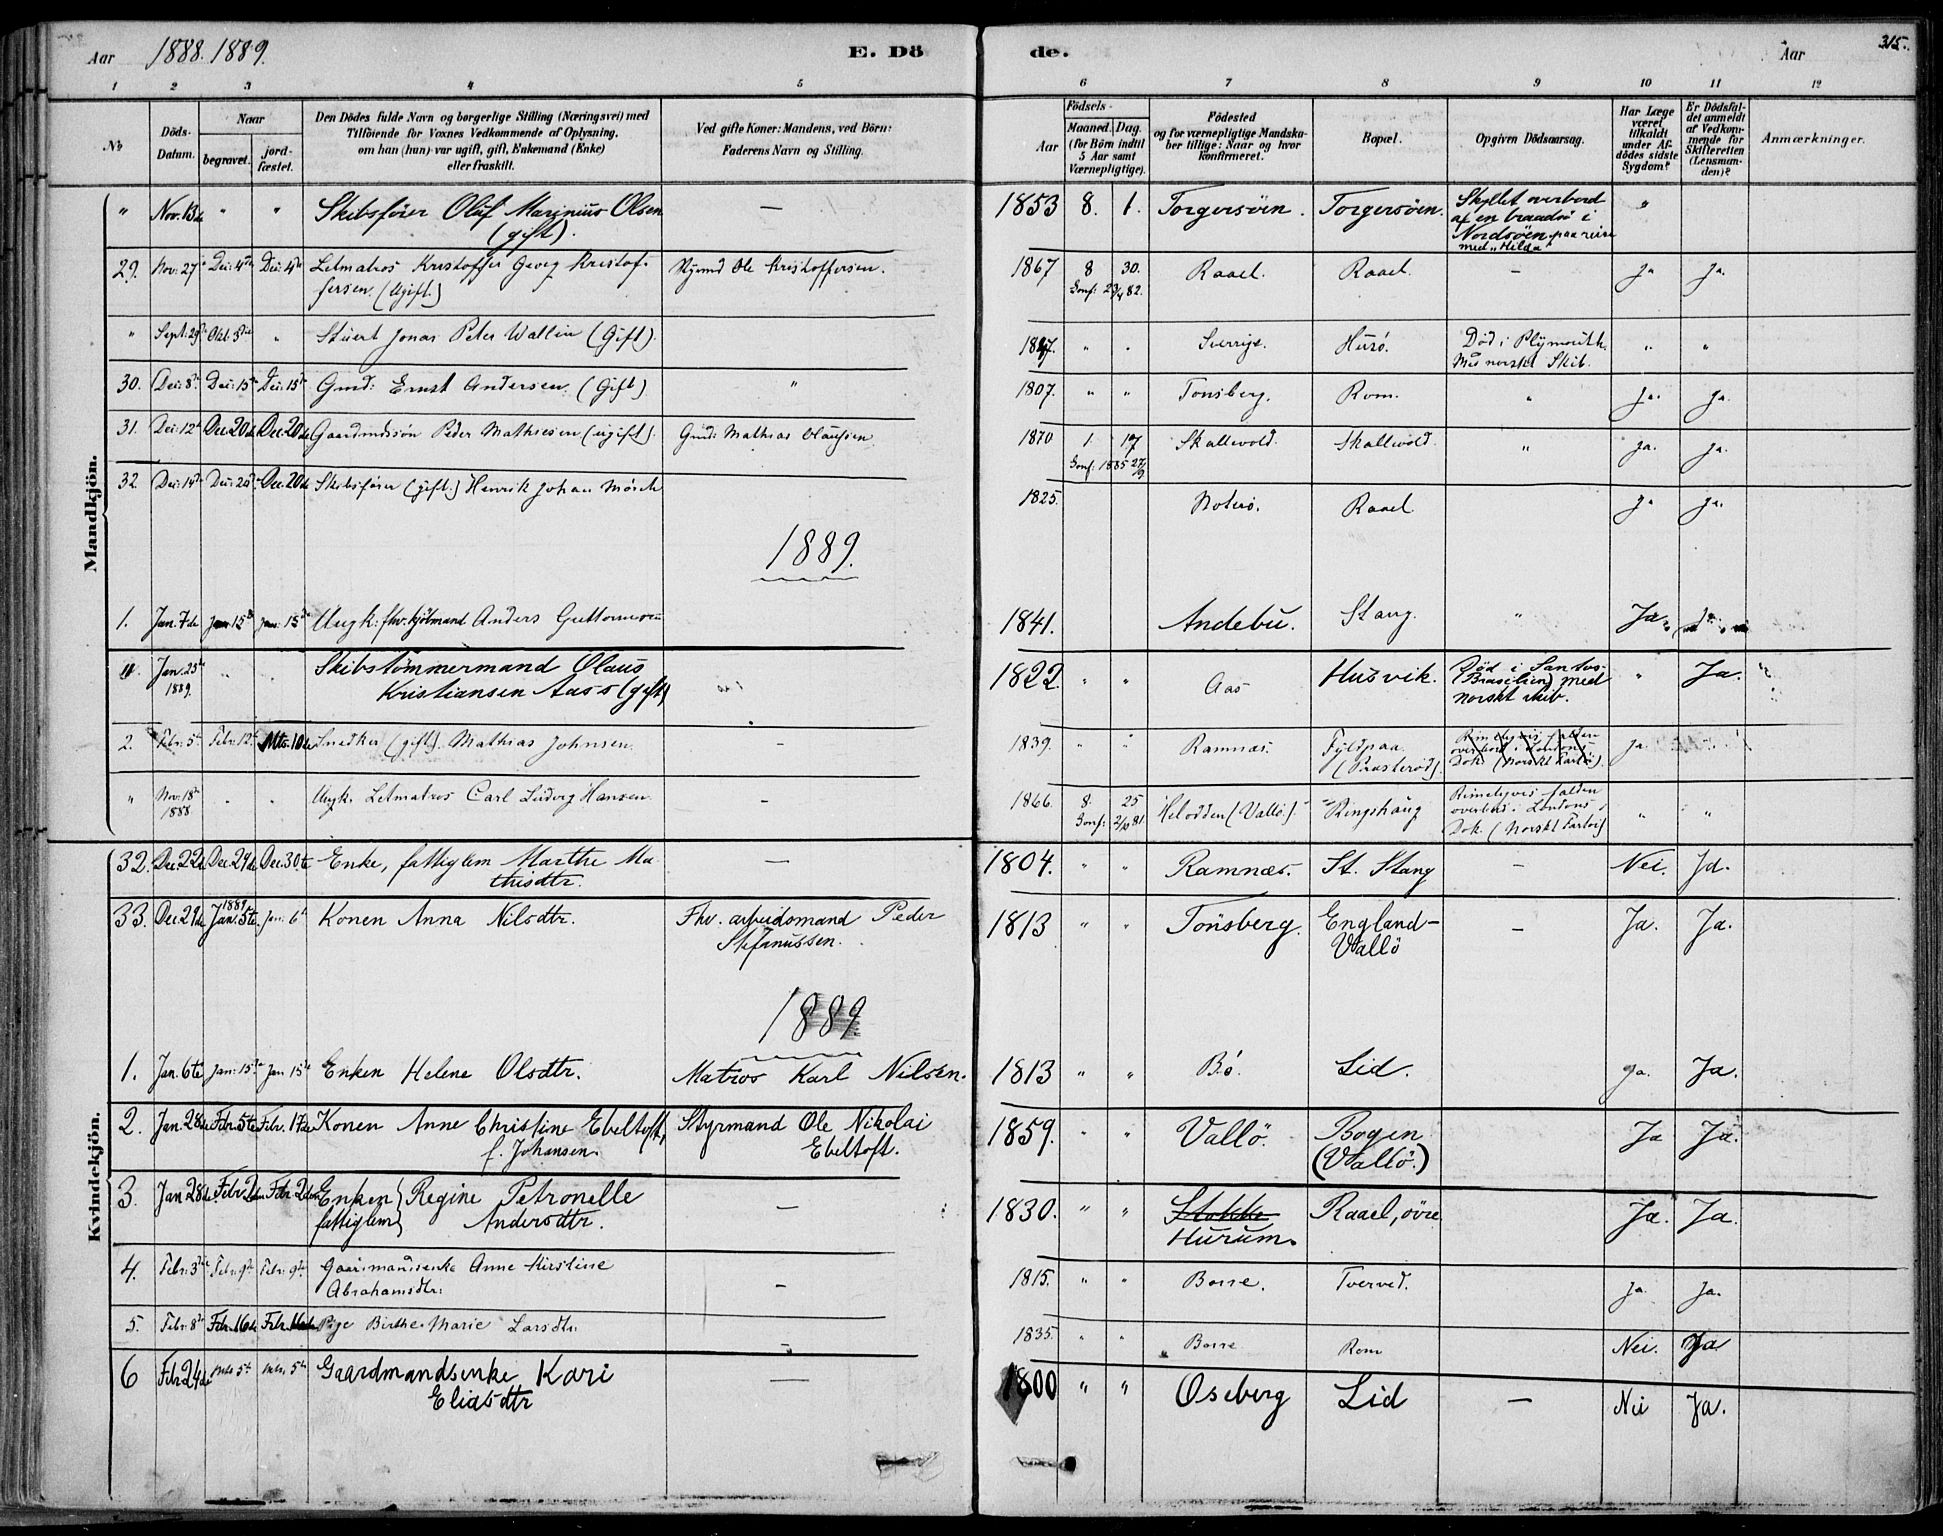 Aar 1888. 1889. E. Dö
de. Aar 315.
1 2 3 4 5
6 7 8 9 10 11 12
No
Döds-Datum.
Naar
begravet.
jord-fæstet.
Den Dödes fulde Navn og borgerlige Stilling (Næringsvei) med
Tilföiende for Voxnes Vedkommende af Oplysning,
om han (hun) var ugift, gift, Enkemand (Enke)
eller fraskilt.
Ved gifte Koner: Mandens, ved Börn:
Faderens Navn og Stilling.
Födsels-
Aar
Maaned. Dag.
(for Börn indtil
5 Aar samt
Værnepligtige).
Födested
og for værnepligtige Mandska-
ber tillige: Naar og hvor
konfirmeret.
Bopæl.
Opgiven Dödsaarsag.
Har Læge
været
tilkaldt
under Af-
dödes sidste
Sygdom?
Er Dödsfal-
det anmeldt
af Vedkom-
mende for
Skifteretten
(Lensman-
den)?
Anmærkninger.
Mandkjön.
" Nov. 13de " " Skibsförer Oluf Marinius Olsen — 1853 8. 1. Torgersöen. Torgersöen. Skyllet overbord "
(gift). af en braadsö i
Nordsöen paa reise
med "Hilda"
29. Nov: 27de Dec: 4de Dec: 4de Letmatros Kristoffer Georg Kristof- Styrmd Ole Kristoffersen. 1867 8 30. Raael. Raael. — Ja Ja.
fersen. (Ugift.) Conf: 23/4 82.
" Sept: 29de Okt. 5te " Stuert Jonas Peter Wallin (Gift). " " Sverrige. Husö. Död i Plymouth. " "
Med norskt Skib.
30. Dec: 8de Dec: 15de Dec: 15de Gmd: Ernst Andersen. (Gift) " 1807. " " Tonsberg. Rom. " Ja. Ja.
31. Dec: 12te Dec. 20de Dec. 20de Gaardmdssön Peder Mathiesen (ugift). Gmd: Mathias Olaussen 1870 1. 17 Skallevold. Skallevold. " Ja. Ja.
Conf: 1885 27/9
32. Dec: 14de Dec: 20de Dec. 20de Skibsförer (gift.) Henrik Johan Mörch 1825. Noterö. Raael Ja Ja.
1889.
1. Jan. 7de Jan: 15de Jan: 15de Ungk: fhv. Kjöbmand Anders Guttormsen 1841. Andebu. Stang. " Ja.
" Jan. 23de " " Skibstömmermand Olaus 1822. " " Aas Husvik. Död i Santos- " Ja. "
1889. Kristiansen Aass (gift) (Brasilien) med
norskt skib.
2. Febr: 5te Febr: 12te Mts. 10de Snedker (gift). Mathias Johnsen. — 1839. " " Ramnæs. Fyldpaa. Rimeligvis falden Ja.
(Præsteröd). overbord i Londons
Dok. (Norskt Fartöi).
" Nov. 18de " " Ungk. Letmatros Carl Ludvig Hansen. — 1866. 8. 25 Helodden (Vallö). Ringshaug Rimeligvis falden " "
1888. Conf: 2/10 81. overbord i Londons
Dok. (Norskt Fartöi)
Kvindekjön.
32. Dec. 22de Dec. 29de Dec. 30te Enke, fattiglem Marthe Ma- — 1804. " " Ramnæs. St. Stang — Nei. Ja.
thisdtr.
33. Dec. 29de 1889 Jan. 5te Jan: 6te Konen Anna Nilsdtr. Fhv. arbeidsmand Peder 1813 " " Tönsberg. England- — Ja. Ja.
Stefanussen. Vallö
1889
1. Jan. 6te Jan: 15de Jan 15de Enken Helene Olsdtr. Matros Karl Nilsen. 1813 " " Bö. Lid. Ja. Ja.
2. Jan. 28de Febr. 5te Febr. 17de Konen Anne Christine Ebeltoft, Styrmand Ole Nikolai 1859. " " Vallö. Bogen Ja Ja.
f. Johansen. Ebeltoft. (Vallö.)
3. Jan 28de Febr. 2den Febr 2den Enken Regine Petronelle — 1830. " " Stokke Raael, övre Ja. Ja.
fattiglem Andersdtr. Hurum.
4. Febr: 3die Febr: 9de Febr: 9de Gaardmandsenke Anne Kirstine — 1815. " " Borre. Tverved. Ja. Ja.
Abrahamsdtr:
5. Febr: 8de Febr. 16de Febr. 16de Pige Birthe Marie Larsdtr. — 1835. " " Borre Rom Nei. Ja
6 Febr 24de Mts 5te Mts. 5te Gaardmandsenke Kari — 1800 " " Oseberg Lid — Nei Ja.
Eliasdtr